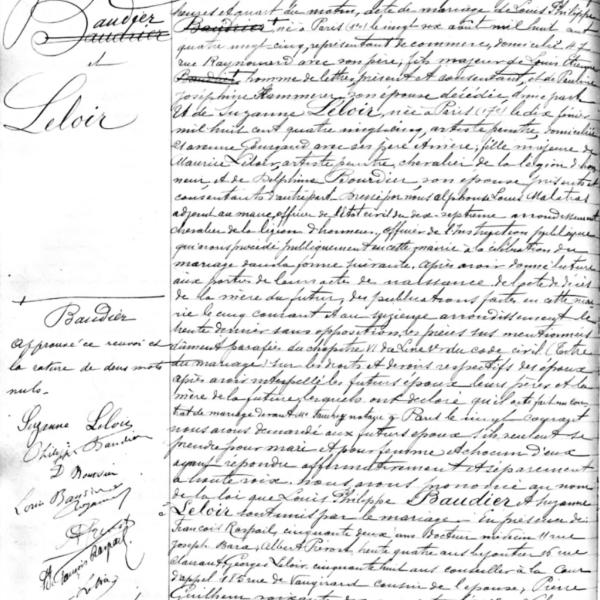 Baudier
Baudrier
et
Leloir
Baudier
approuvé ce renvoi et
la rature de deux mots
nuls.
Suzanne Leloir
Philippe Baudier
Louis Baudier
Dr François Raspail
onzes et quart du matin, acte de mariage de Louis Philippe
Baudrier né à Paris le vingt six août mil huit cent
quatre vingt cinq, représentant de commerce, domicilié 47
rue Raynouard avec son père; fils majeur de Louis Etienne
Baudrier, homme de lettres, présent et consentant, et de Pauline
Joséphine Hammerer son épouse décédée d'une part
Et de Suzanne Leloir, née à Paris (17e) le dix juin
mil huit cent quatre vingt cinq, artiste peintre, domiciliée
avenue Gourgaud avec ses père et mère; fille majeure de
Maurice Leloir, artiste peintre, chevalier de la légion d'hon
neur et de Delphine Bourdier son épouse présents et
consentants d'autre part. Dressé par nous Alphonse Louis Malatras
adjoint au maire, officier de l'état civil du dix septième arrondissement
chevalier de la légion d'honneur, officier de l'Instruction publique
qui avons procédé publiquement en cette mairie à la célébration du
mariage dans la forme suivante. Après avoir donné lecture
aux parties de leurs actes de naissance de l'acte de décès
de la mère du futur, des publications faites en cette mai
rie le cinq courant et au seizième arrondissement le
trente dernier sans opposition, les pièces sus mentionnées
dûment parafées du chapitre VI du Livre Ier du code civil (titre
du mariage) sur les droits et devoirs respectifs des époux
après avoir interpellé les futurs époux leurs pères et la
mère de la future, lesquels ont déclaré qu'il a été fait un con
trat de mariage devant Me notaire à Paris le vingt courant
nous avons demandé aux futurs époux s'ils veulent se
prendre pour mari et pour femme et chacun d'eux
ayant répondu affirmativement et séparément
à haute voix. Nous avons prononcé au nom
de la loi que Louis Philippe Baudier et Suzanne
Leloir sont unis par le mariage. En présence de:
François Raspail, cinquante deux ans Docteur médecin 11 rue
Joseph Bara, Albert trente quatre ans bijoutier 16 rue
Georges Leloir cinquante huit ans conseiller à la Cour
d'appel 185 rue de Vaugirard cousin de l'épouse, Pierre
Guilhem